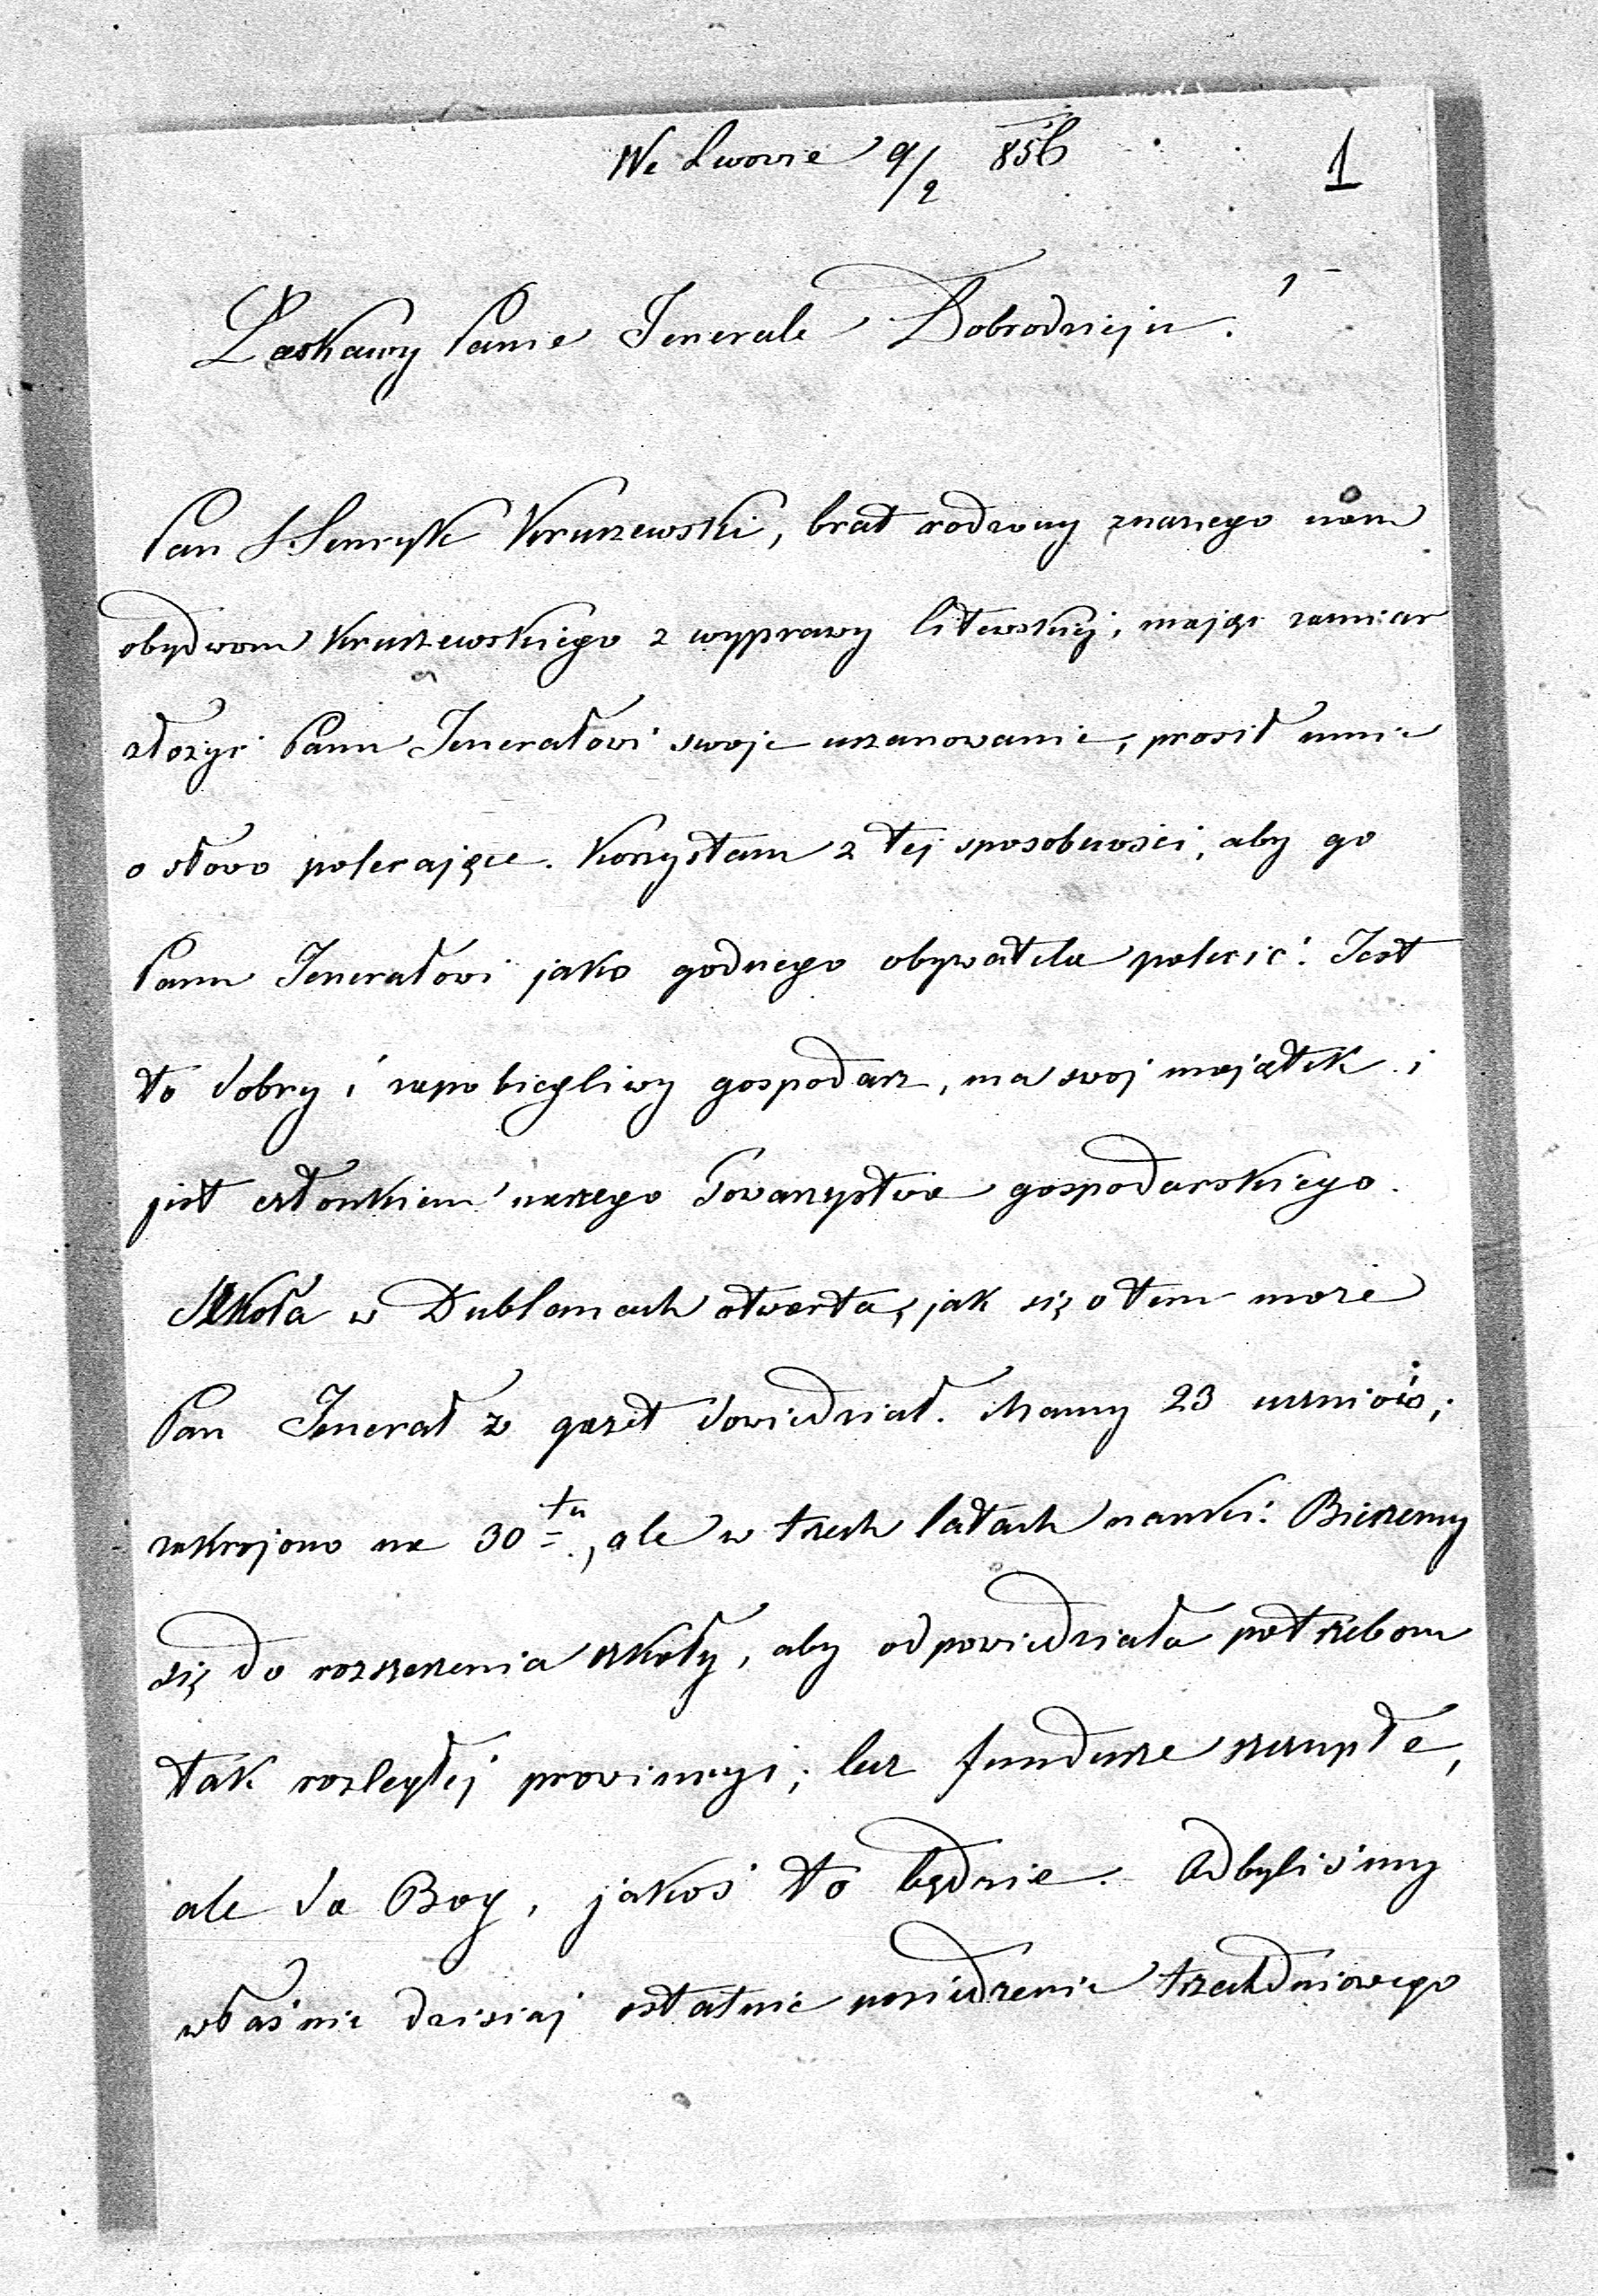 We Lwowie 9/2 856
1
Łaskawy Panie Jenerale Dobrodzieju!
Pan Henryk Kruszewski, brat rodzony znanego nam
obydwom Kruszewskiego z wyprawy litewskiej, mając zamiar
złożyć Panu Jenerałowi swoje uszanowanie, prosił mnie
o słowo polecające. Korzystam z tej sposobności, aby go
Panu Jenerałowi jako godnego obywatela polecić. Jest
to dobry i zapobiegliwy gospodarz, ma swój majątek i
jest członkiem naszego Towarzystwa gospodarskiego.
Szkoła w Dublanach otwarta, jak się o tem może
Pan Jenerał z gazet dowiedział. Mamy 23 uczniów;
zakrojono na 30tu, ale w trzech latach nauki. Bierzemy
się do rozszerzenia szkoły, aby odpowiedziała potrzebom
tak rozległej prowincyi; lecz fundusze szczupłe,
ale da Bóg, jakoś to będzie. Odbyliśmy
właśnie dzisiaj ostatnie posiedzenie trzechdniowego